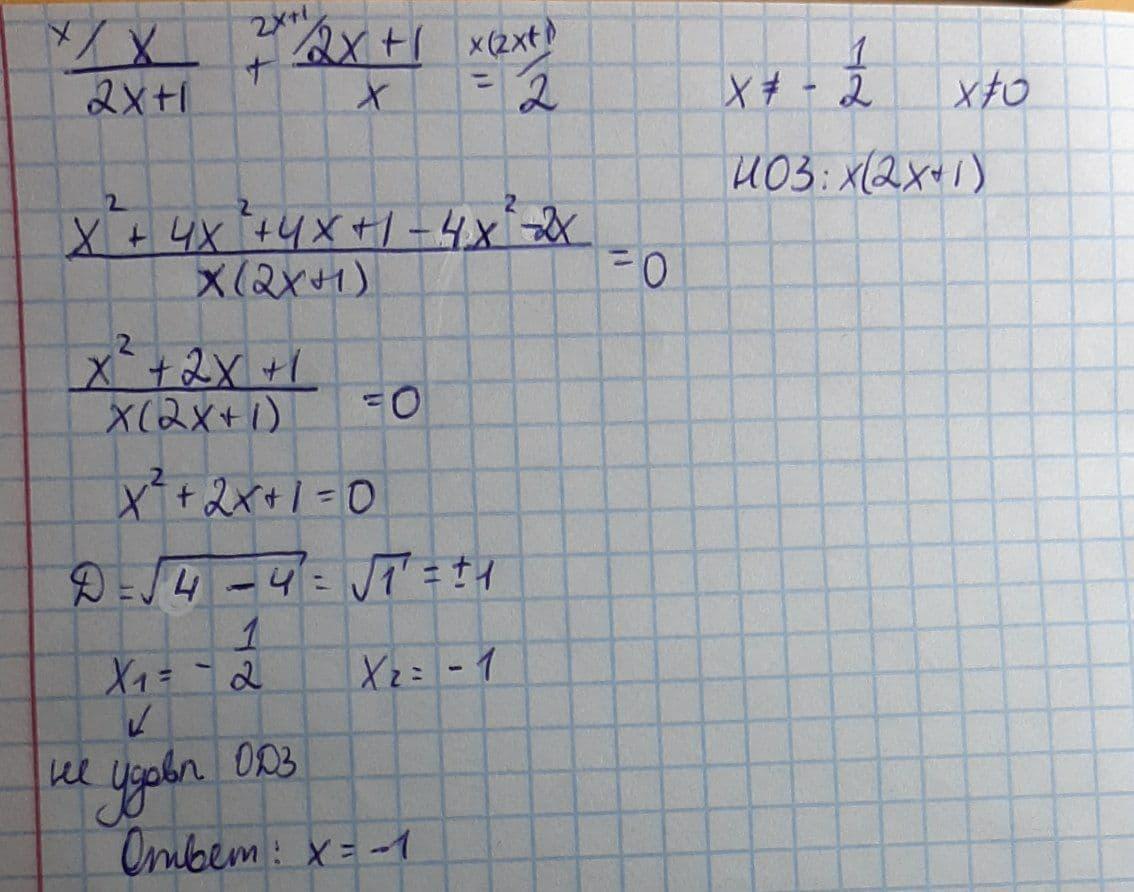 x/ x/(2x+1) + 2x+1/ (2x+1)/x = x(2x+1)/ 2    x ≠ - 1/2    x≠0
НОЗ: x(2x+1)
(x² + 4x² + 4x + 1 - 4x² - 2x)/(x(2x+1)) = 0
(x² + 2x + 1)/(x(2x+1)) = 0
x² + 2x + 1 = 0
Д = √(4 - 4) = √1 = ±1
x₁ = - 1/2    x₂ = - 1
↙
не удовл ОДЗ
Ответ: x = -1